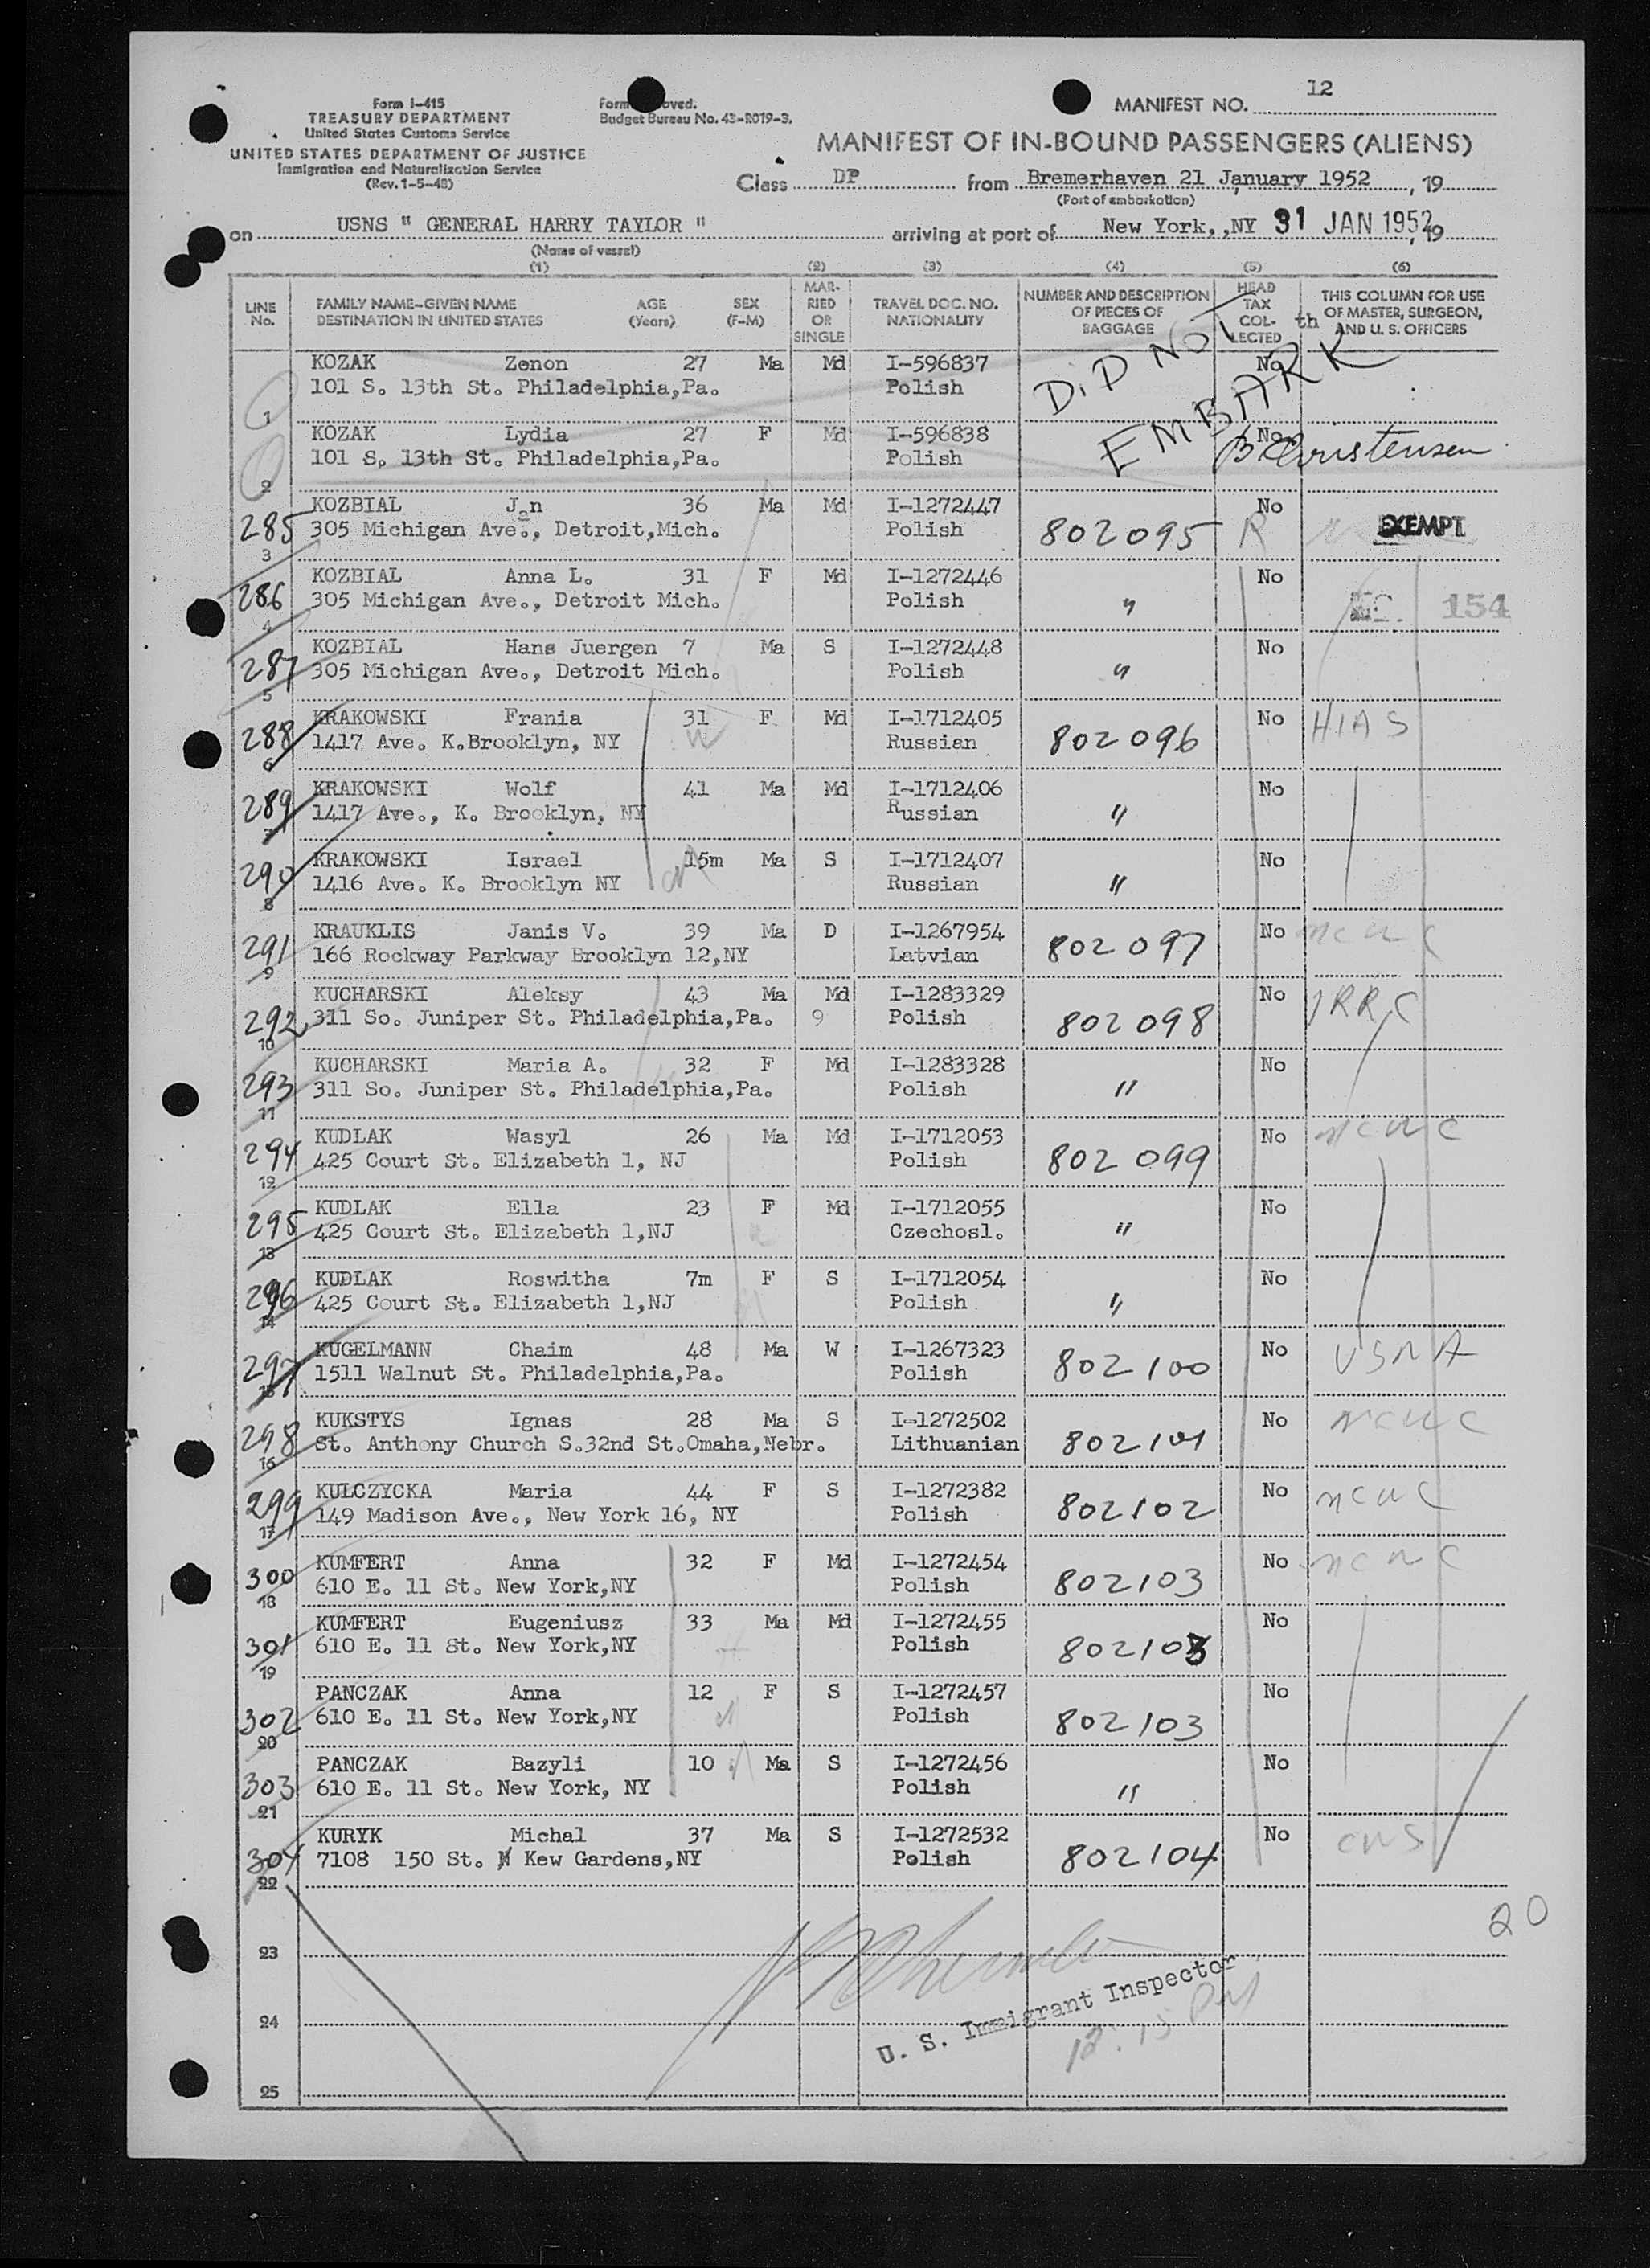 Form I-415
TREASURY DEPARTMENT
United States Customs Service
UNITED STATES DEPARTMENT OF JUSTICE
Immigration and Naturalization Service
(Rev. 1-5-48)
Form oved.
Budget Bureau No. 43-R019-3.
MANIFEST NO. 12
MANIFEST OF IN-BOUND PASSENGERS (ALIENS)
Class DP from Bremerhaven 21 January 1952, 19
(Port of embarkation)
on USNS " GENERAL HARRY TAYLOR " arriving at port of New York,,NY 31 JAN 1952, 19
(Name of vessel)
(1) (2) (3) (4) (5) (6)
LINE No. FAMILY NAME-GIVEN NAME DESTINATION IN UNITED STATES AGE (Years) SEX (F-M) MAR-RIED OR SINGLE TRAVEL DOC. NO. NATIONALITY NUMBER AND DESCRIPTION OF PIECES OF BAGGAGE HEAD TAX COL-LECTED th THIS COLUMN FOR USE OF MASTER, SURGEON, AND U. S. OFFICERS
KOZAK Zenon 27 Ma Md I-596837 DID NOT No
1 101 S. 13th St. Philadelphia,Pa. Polish EMBARK
KOZAK Lydia 27 F Md I-596838 No
2 101 S. 13th St. Philadelphia,Pa. Polish B Christensen
KOZBIAL Jan 36 Ma Md I-1272447 No
285 3 305 Michigan Ave., Detroit,Mich. Polish 802095 R EXEMPT
KOZBIAL Anna L. 31 F Md I-1272446 No
286 4 305 Michigan Ave., Detroit Mich. Polish " 154
KOZBIAL Hans Juergen 7 Ma S I-1272448 No
287 5 305 Michigan Ave., Detroit Mich. Polish "
KRAKOWSKI Frania 31 F Md I-1712405 No HIAS
288 6 1417 Ave. K.Brooklyn, NY Russian 802096
KRAKOWSKI Wolf 41 Ma Md I-1712406 No
289 7 1417 Ave., K. Brooklyn, NY Russian "
KRAKOWSKI Israel 15m Ma S I-1712407 No
290 8 1416 Ave. K. Brooklyn NY Russian "
KRAUKLIS Janis V. 39 Ma D I-1267954 No ncwc
291 9 166 Rockway Parkway Brooklyn 12,NY Latvian 802097
KUCHARSKI Aleksy 43 Ma Md I-1283329 No IRRC
292 10 311 So. Juniper St. Philadelphia,Pa. 9 Polish 802098
KUCHARSKI Maria A. 32 F Md I-1283328 No
293 11 311 So. Juniper St. Philadelphia,Pa. Polish "
KUDLAK Wasyl 26 Ma Md I-1712053 No ncwc
294 12 425 Court St. Elizabeth 1, NJ Polish 802099
KUDLAK Ella 23 F Md I-1712055 No
295 13 425 Court St. Elizabeth 1,NJ Czechosl. "
KUDLAK Roswitha 7m F S I-1712054 No
296 14 425 Court St. Elizabeth 1,NJ Polish "
KUGELMANN Chaim 48 Ma W I-1267323 No USNA
297 15 1511 Walnut St. Philadelphia,Pa. Polish 802100
KUKSTYS Ignas 28 Ma S I-1272502 No ncwc
298 16 St. Anthony Church S.32nd St.Omaha,Nebr. Lithuanian 802101
KULCZYCKA Maria 44 F S I-1272382 No ncwc
299 17 149 Madison Ave., New York 16, NY Polish 802102
KUMFERT Anna 32 F Md I-1272454 No ncwc
300 18 610 E. 11 St. New York,NY Polish 802103
KUMFERT Eugeniusz 33 Ma Md I-1272455 No
301 19 610 E. 11 St. New York,NY Polish 802103
PANCZAK Anna 12 F S I-1272457 No
302 20 610 E. 11 St. New York,NY Polish 802103
PANCZAK Bazyli 10 Ma S I-1272456 No
303 21 610 E. 11 St. New York, NY Polish "
KURYK Michal 37 Ma S I-1272532 No cws
304 22 7108 150 St. Kew Gardens,NY Polish 802104
20
23
24
U. S. Immigrant Inspector
12:15 PM
25